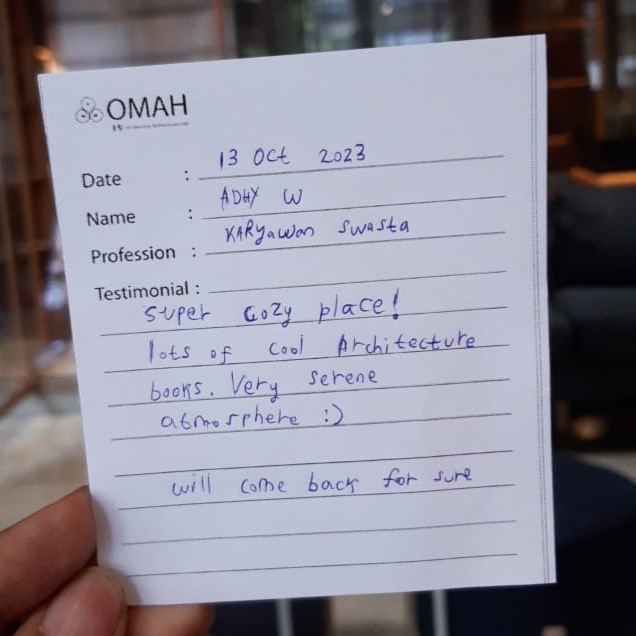 OMAH
Date : 13 Oct 2023
Name : ADHY W
Profession : KARyawan Swasta
Testimonial :
Super Cozy place!
lots of Cool Architecture
books. Very serene
atmosphere :)
will come back for sure